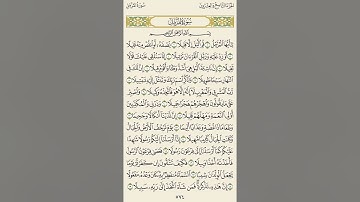 الجزء التاسع والعشرون سورة المزمل
سُورَةُ المُزَّمِّلِ
بِسْمِ اللَّهِ الرَّحْمَٰنِ الرَّحِيمِ
يَا أَيُّهَا الْمُزَّمِّلُ ١ قُمِ اللَّيْلَ إِلَّا قَلِيلًا ٢ نِصْفَهُ أَوِ انْقُصْ مِنْهُ قَلِيلًا ٣
أَوْ زِدْ عَلَيْهِ وَرَتِّلِ الْقُرْآنَ تَرْتِيلًا ٤ إِنَّا سَنُلْقِي عَلَيْكَ قَوْلًا
ثَقِيلًا ٥ إِنَّ نَاشِئَةَ اللَّيْلِ هِيَ أَشَدُّ وَطْئًا وَأَقْوَمُ قِيلًا ٦ إِنَّ لَكَ فِي
النَّهَارِ سَبْحًا طَوِيلًا ٧ وَاذْكُرِ اسْمَ رَبِّكَ وَتَبَتَّلْ إِلَيْهِ تَبْتِيلًا ٨ رَبُّ
الْمَشْرِقِ وَالْمَغْرِبِ لَا إِلَٰهَ إِلَّا هُوَ فَاتَّخِذْهُ وَكِيلًا ٩ وَاصْبِرْ
عَلَىٰ مَا يَقُولُونَ وَاهْجُرْهُمْ هَجْرًا جَمِيلًا ١٠ وَذَرْنِي وَالْمُكَذِّبِينَ
أُولِي النَّعْمَةِ وَمَهِّلْهُمْ قَلِيلًا ١١ إِنَّ لَدَيْنَا أَنْكَالًا وَجَحِيمًا ١٢
وَطَعَامًا ذَا غُصَّةٍ وَعَذَابًا أَلِيمًا ١٣ يَوْمَ تَرْجُفُ الْأَرْضُ وَالْجِبَالُ
وَكَانَتِ الْجِبَالُ كَثِيبًا مَهِيلًا ١٤ إِنَّا أَرْسَلْنَا إِلَيْكُمْ رَسُولًا شَاهِدًا
عَلَيْكُمْ كَمَا أَرْسَلْنَا إِلَىٰ فِرْعَوْنَ رَسُولًا ١٥ فَعَصَىٰ فِرْعَوْنُ الرَّسُولَ
فَأَخَذْنَاهُ أَخْذًا وَبِيلًا ١٦ فَكَيْفَ تَتَّقُونَ إِنْ كَفَرْتُمْ يَوْمًا
يَجْعَلُ الْوِلْدَانَ شِيبًا ١٧ السَّمَاءُ مُنْفَطِرٌ بِهِ كَانَ وَعْدُهُ مَفْعُولًا ١٨
إِنَّ هَٰذِهِ تَذْكِرَةٌ فَمَنْ شَاءَ اتَّخَذَ إِلَىٰ رَبِّهِ سَبِيلًا ١٩
٥٧٤